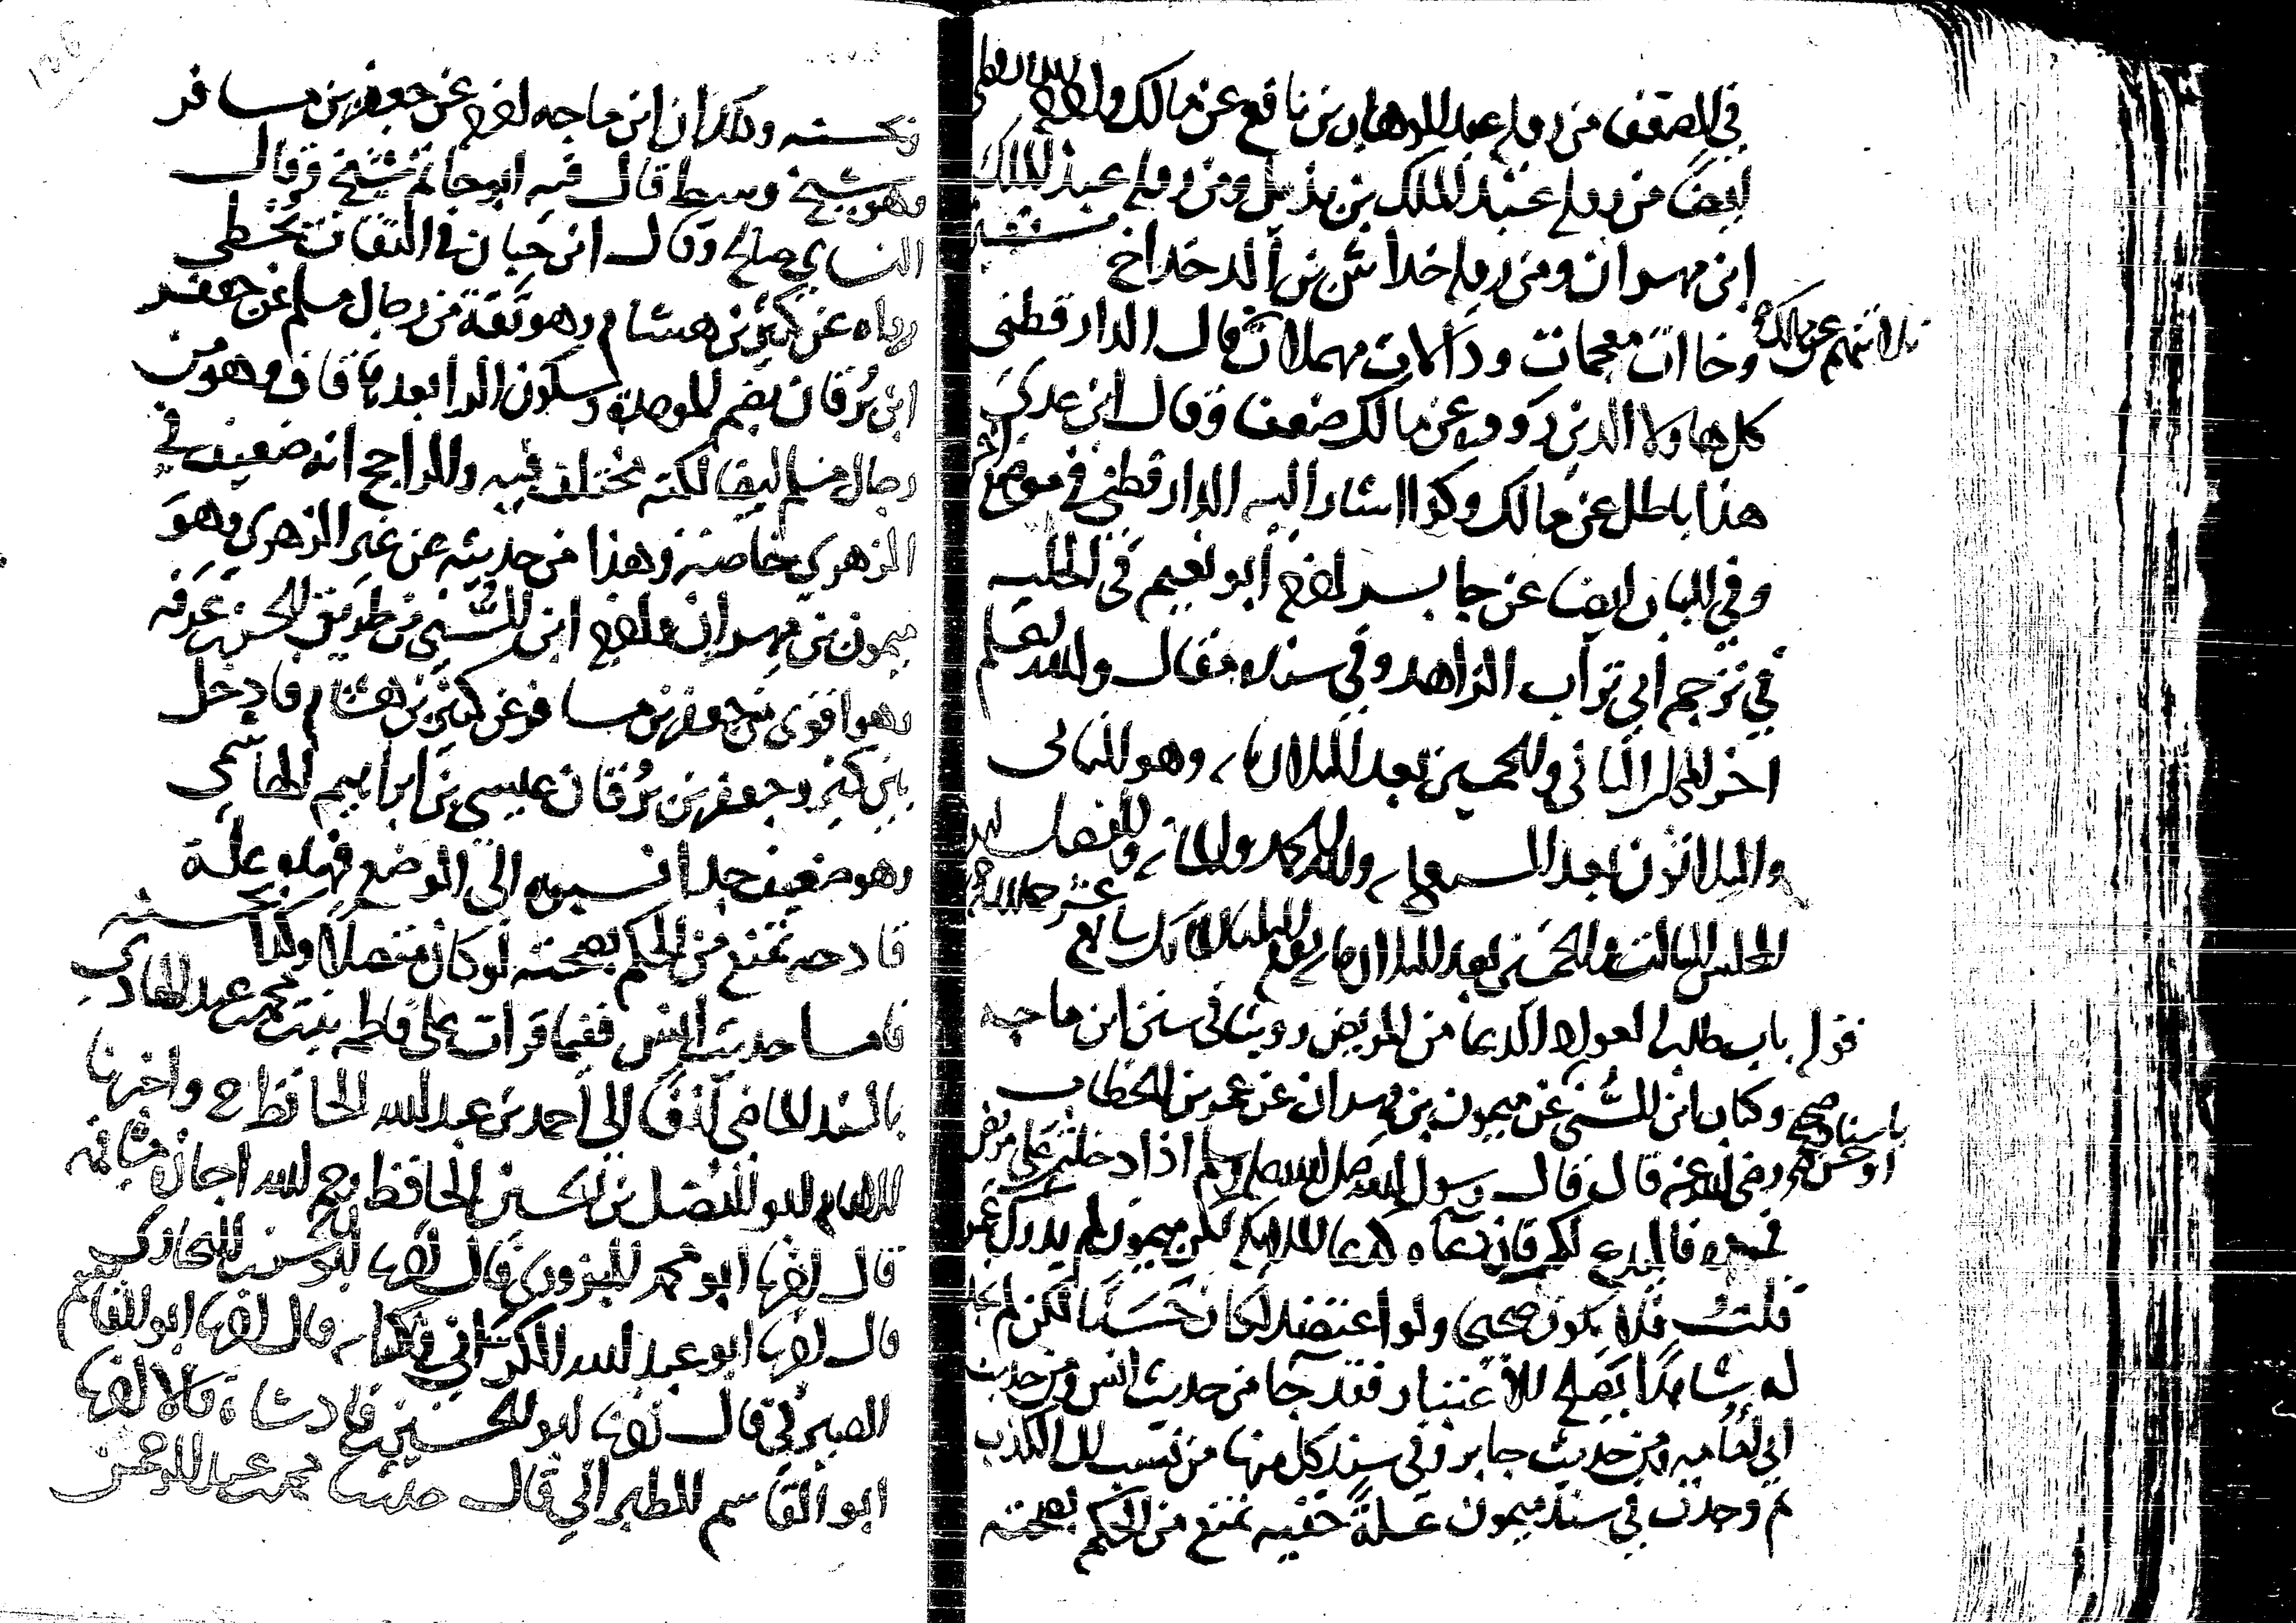 في الضعفا من رواية عبد الوهاب بن نافع عن مالك واخرجه الدارقطني
ايضا من رواية عبد الملك بن بديل ومن رواية عبد الملك
ابن مهران ومن رواية خداش بن الدخداخ
وخاات معجمات ودالات مهملات ثلاثتهم عن مالك قال الدارقطني
كل هاولا الذين رووه عن مالك ضعفا وقال ابن عدي
هذا باطل عن مالك وكذا اشار اليه الدارقطني في موضع اخر
وفي الباب ايضا عن جابر اخرجه أبو نعيم في الحلية
في ترجمة أبي تراب الزاهد وفي سنده مقال والله اعلم
اخر المجلس الثاني والخمسين بعد الثلاثماية وهو الثاني
والثلاثون بعد السبعماية
المجلس الثالث والخمسين بعد الثلاثماية
قوله باب طلب العواد الدعا من المريض روينا في سنن ابن ماجه
وكتاب ابن السني باسناد صحيح او حسن عن ميمون بن مهران عن عمر بن الخطاب
رضي الله عنه قال قال رسول الله صلى الله عليه وسلم اذا دخلت على مريض
فمره فليدع لك فان دعاه كدعا الملايكة لكن ميمون لم يدرك عمر
قلت فلا يكون صحيحا ولو اعتضد لكان حسنا لكن لم نجد
له شاهدا يصلح للاعتبار فقد جا من حديث انس ومن حديث
ابي امامه ومن حديث جابر وفي سند كل منها من نسب الى الكذب
ثم وجدت في سند ميمون علة خفيه تمنع من الحكم بصحته
وبحسنه وذلك ان ابن ماجه اخرجه عن جعفر بن مسافر
وهو شيخ وسط قال فيه ابو حاتم شيخ وقال
النساي صالح وقال ابن حبان في الثقات يخطي
رواه عن كثير بن هشام وهو ثقة من رجال مسلم عن جعفر
ابن بُرقان بضم الموحدة وسكون الرا بعدها قاف وهو من
رجال مسلم ايضا لكنه مختلف فيه والراجح انه ضعيف في
الزهري خاصة وهذا من حديثه عن غير الزهري وهو
ميمون بن مهران واخرجه ابن السُّني من طريق الحسن بن عرفه
وهو اقوى من جعفر بن مسافر عن كثير بن هشام فادخل
بين كثير وجعفر بن بُرقان عيسى بن ابراهيم الهاشمي
وهو ضعيف جدا نسبوه الى الوضع فهذه علة
قادحه تمنع من الحكم بصحته لو كان متصلا وكذا بحسنه
فاما حديث انس فقيما قرات على فاطمه بنت محمد بن عبد الهادي
بالسند الماضي آنفا الى احمد بن عبد الله الحافظ ح واخبرنا
الامام ابو الفضل بن الحسين الحافظ رحمه الله اجازة مشافهة
قال اخبرنا ابو محمد البزوري قال اخبرنا ابو الحسن بن البخاري
قال اخبرنا ابو عبد الله الكراني في كتابه قال اخبرنا ابو القاسم
الصيرفي قال اخبرنا ابو الحسين بن فادشاه قالا اخبرنا
ابو القاسم الطبراني قال حدثنا محمد بن عبد الرحمن